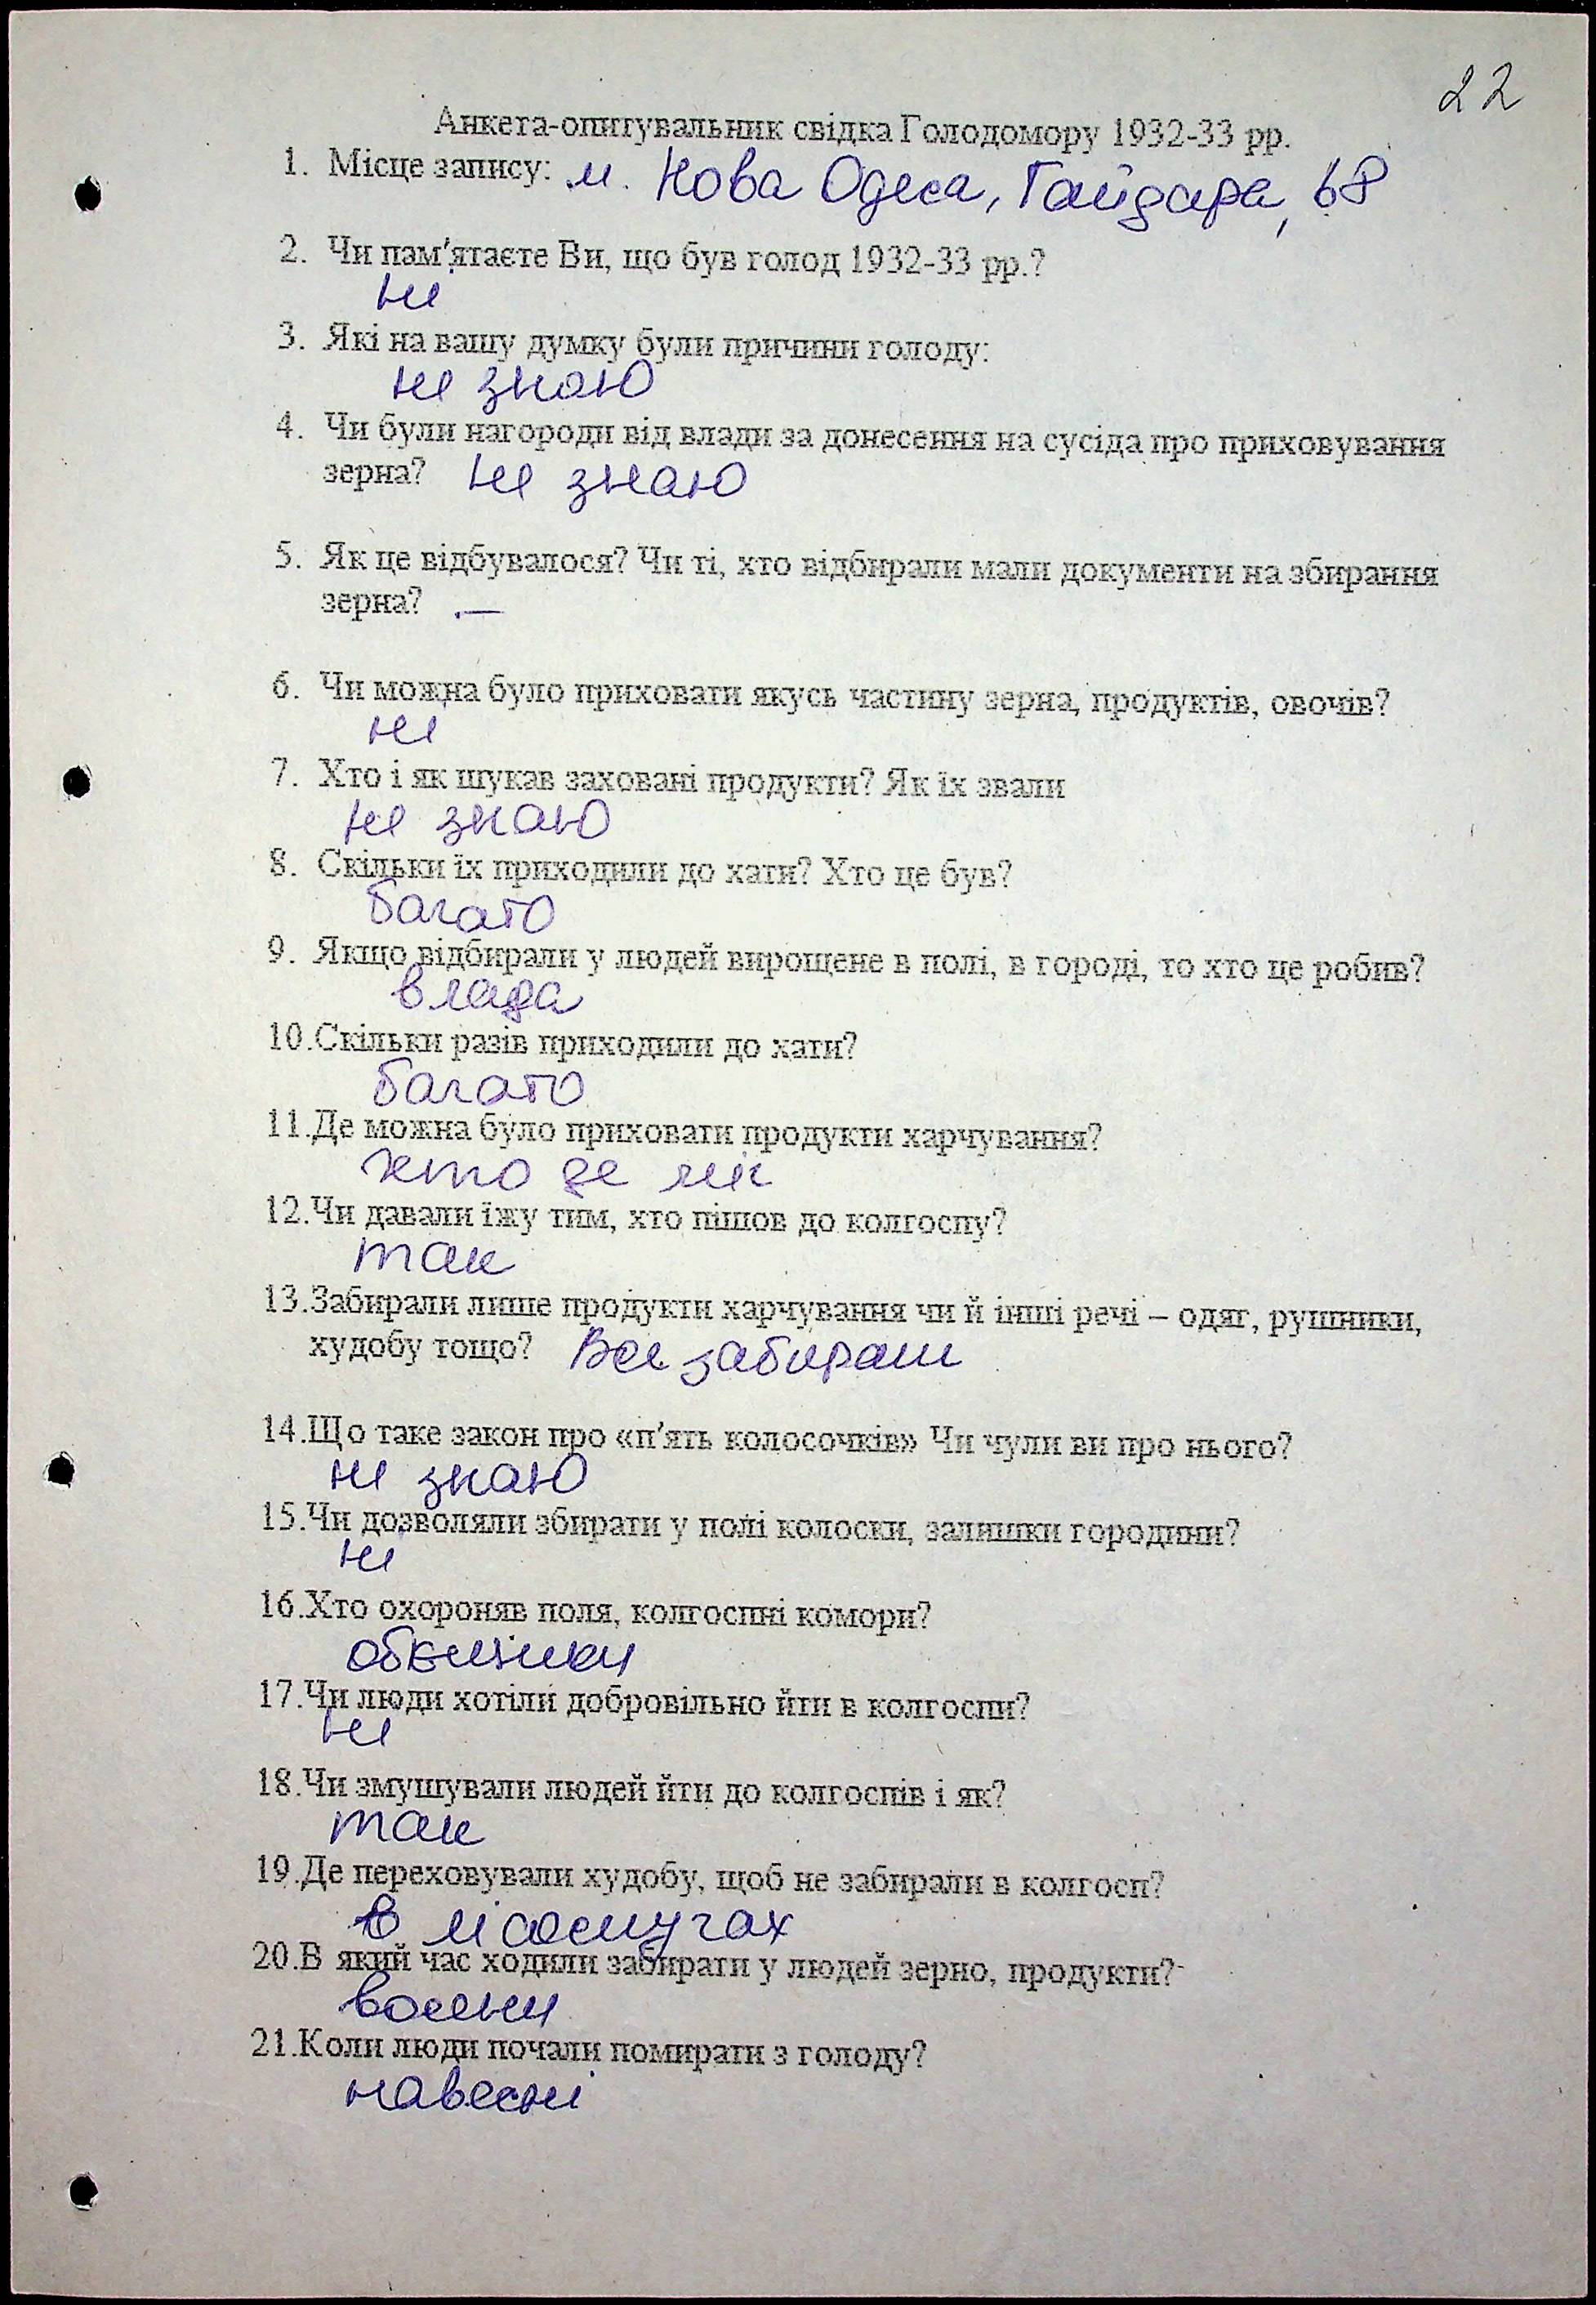 22
Анкета-опитувальник свідка Голодомору 1932-33 рр.
1. Місце запису: м. Нова Одеса, Гайдара, 68
2. Чи пам'ятаєте Ви, що був голод 1932-33 рр.?
ні
3. Які на вашу думку були причини голоду:
не знаю
4. Чи були нагороди від влади за донесення на сусіда про приховування
зерна? не знаю
5. Як це відбувалося? Чи ті, хто відбирали мали документи на збирання
зерна? —
6. Чи можна було приховати якусь частину зерна, продуктів, овочів?
ні
7. Хто і як шукав заховані продукти? Як їх звали
не знаю
8. Скільки їх приходили до хати? Хто це був?
багато
9. Якщо відбирали у людей вирощене в полі, в городі, то хто це робив?
влада
10.Скільки разів приходили до хати?
багато
11.Де можна було приховати продукти харчування?
хто де міг
12.Чи давали їжу тим, хто пішов до колгоспу?
так
13.Забирали лише продукти харчування чи й інші речі – одяг, рушники,
худобу тощо? Все забирали
14.Що таке закон про «п'ять колосочків» Чи чули ви про нього?
не знаю
15.Чи дозволяли збирати у полі колоски, залишки городини?
ні
16.Хто охороняв поля, колгоспні комори?
обєщики
17.Чи люди хотіли добровільно йти в колгоспи?
ні
18.Чи змушували людей йти до колгоспів і як?
так
19.Де переховували худобу, щоб не забирали в колгосп?
в лісосмугах
20.В який час ходили забирати у людей зерно, продукти?
восени
21.Коли люди почали помирати з голоду?
навесні